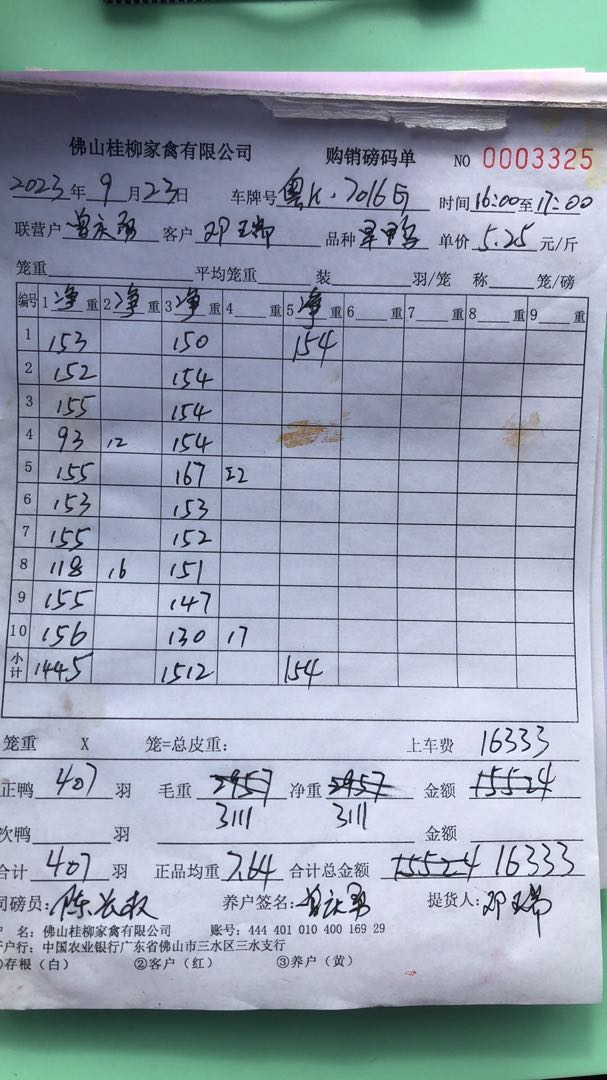 佛山桂柳家禽有限公司 购销磅码单 NO 0003325
2023年9月23日 车牌号 粤K·7016 时间16:00至17:00
联营户 曾庆勇 客户 邓 品种 单价 5.25 元/斤
笼重 平均笼重 装 羽/笼 称 笼/磅
编号 1净重 2净重 3净重 4 重 5净重 6 重 7 重 8 重 9 重
1 153 150 154
2 152 154
3 155 154
4 93 12 154
5 155 167 22
6 153 153
7 155 152
8 118 16 151
9 155 147
10 156 130 17
小计 1445 1512 154
笼重 X 笼=总皮重: 上车费 16333
正鸭 407 羽 毛重 2957 净重 2957 金额 15524
3111 3111
次鸭 羽 金额
合计 407 羽 正品均重 7.64 合计总金额 15524 16333
司磅员: 陈 养户签名: 曾庆勇 提货人: 邓
户 名: 佛山桂柳家禽有限公司 账号: 444 401 010 400 169 29
开户行: 中国农业银行广东省佛山市三水区三水支行
①存根(白) ②客户(红) ③养户(黄)